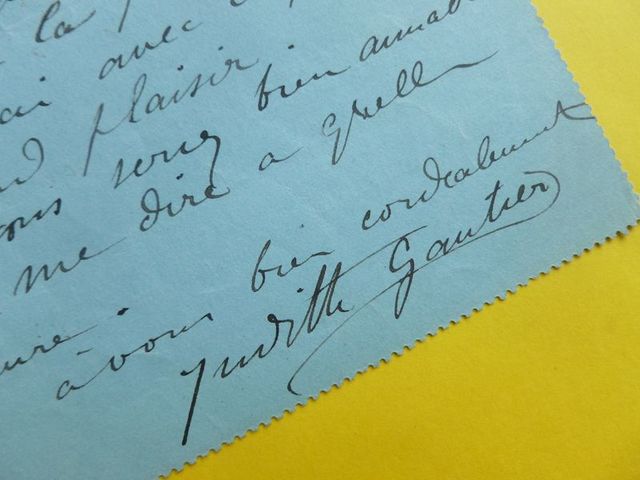 la
ai avec
plaisir.
vous serez bien aimabl
me dire a quelle
ure.
à vous bien cordialement
Judith Gautier